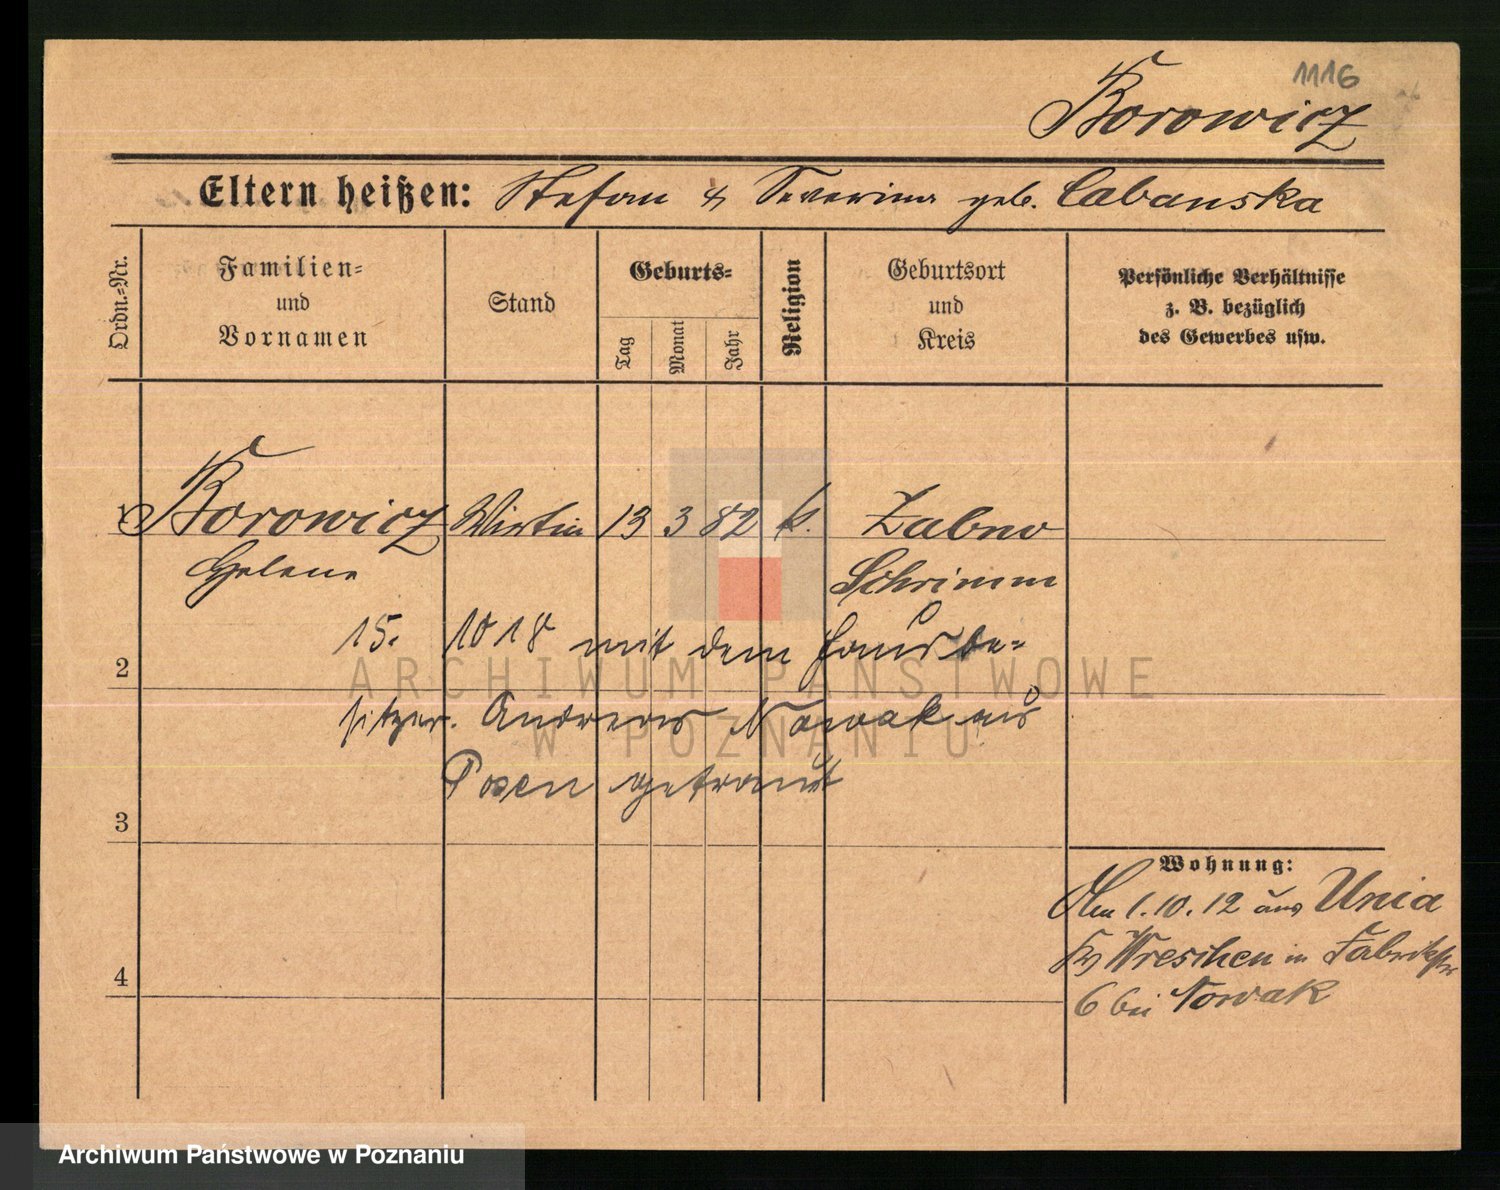 1116
Borowicz
Eltern heißen: Stefan & Severina geb. Cabanska
Ordn.-Nr.
Familien-
und
Vornamen
Stand
Geburts-
Tag
Monat
Jahr
Religion
Geburtsort
und
Kreis
Persönliche Verhältnisse
z. B. bezüglich
des Gewerbes usw.
1 Borowicz Wirtin 13 3 82 k. Zabno
Helene Schrimm
15. 10 18 mit dem Hausbe-
2
sitzer. Andreas Nowak aus
Posen getraut
3
Wohnung:
Am 1.10.12 aus Unia
Kr Wreschen in Fabrikstr
4
6 bei Nowak
ARCHIWUM PAŃSTWOWE
W POZNANIU
Archiwum Państwowe w Poznaniu